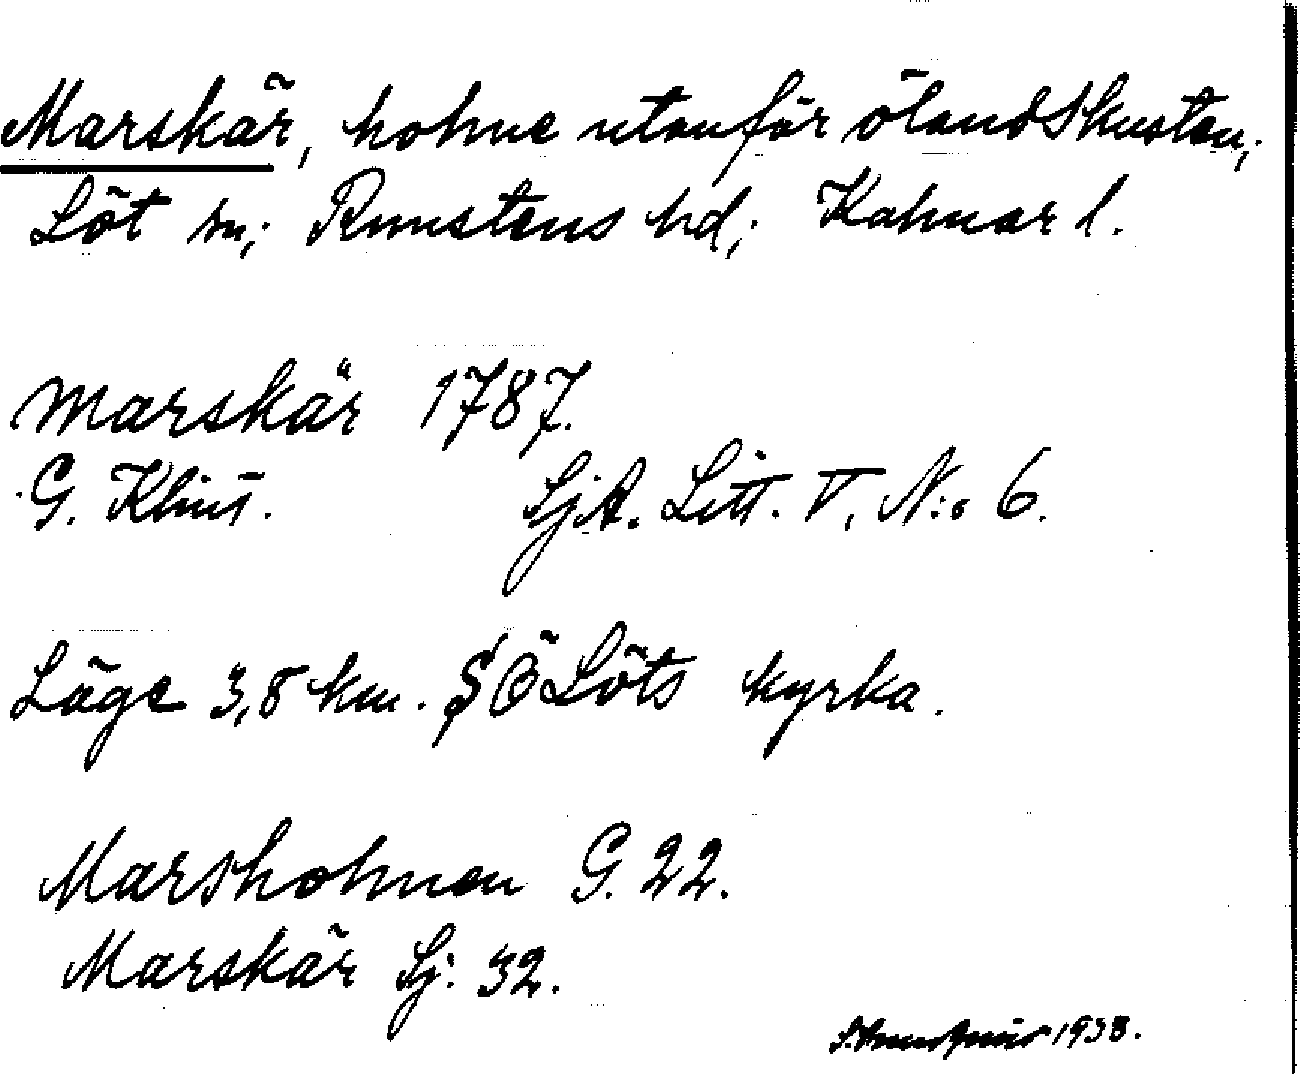 Marskär, holme utanför ölandskusten;
Löt sn; Runstens hd; Kalmar l.
Marskär 1787.
G. Klint. SjA. Litt. V. N:o 6.
Läge 3,8 km. SÖ Löts kyrka.
Marsholmen G. 22.
Marskär Sj: 32.
1933.